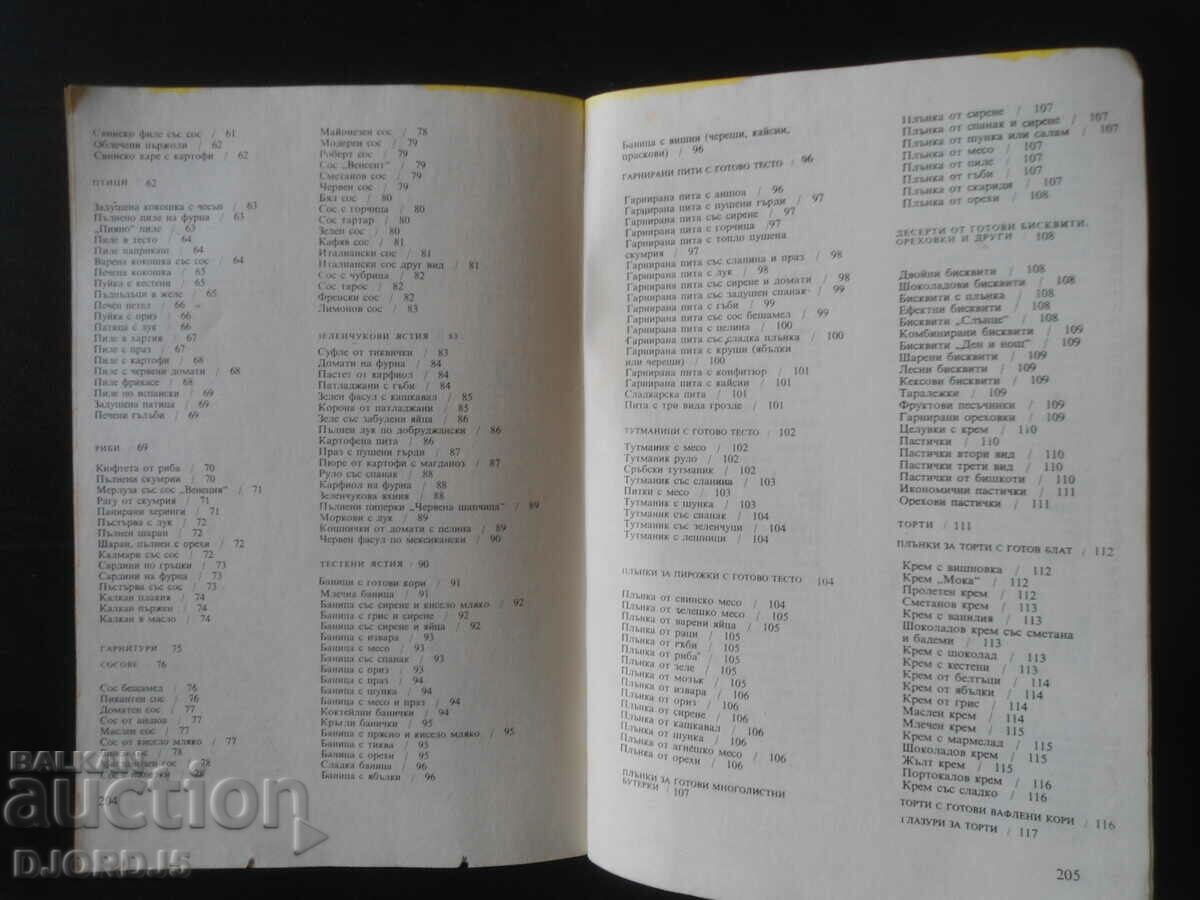 Свинско филе със сос / 61
Облечени пържоли / 62
Свинско каре с картофи / 62
ПТИЦИ / 62
Задушена кокошка с чесън / 63
Пълнено пиле на фурна / 63
„Пияно" пиле / 63
Пиле в тесто / 64
Пиле паприкаш / 64
Варена кокошка със сос / 64
Печена кокошка / 65
Пуйка с кестени / 65
Пъдпъдъци в желе / 65
Печен петел / 66
Пуйка с ориз / 66
Патица с лук / 66
Пиле в хартия / 67
Пиле с праз / 67
Пиле с картофи / 68
Пиле с червени домати / 68
Пиле фрикасе / 68
Пиле по испански / 69
Задушена патица / 69
Печени гълъби / 69
РИБИ / 69
Кюфтета от риба / 70
Пълнена скумрия / 70
Мерлуза със сос „Венеция" / 71
Рагу от скумрия / 71
Панирани херинги / 71
Пъстърва с лук / 72
Пълнен шаран / 72
Шаран, пълнен с орехи / 72
Калмари със сос / 72
Сардини по гръцки / 73
Сардини на фурна / 73
Пъстърва със сос / 73
Калкан плакия / 74
Калкан пържен / 74
Калкан в масло / 74
ГАРНИТУРИ / 75
СОСОВЕ / 76
Сос бешамел / 76
Пикантен сос / 76
Доматен сос / 77
Сос от аншоа / 77
Маслен сос / 77
Сос от кисело мляко / 77
/ 78
сос / 78
/ 78
204
Майонезен сос / 78
Модерен сос / 79
Роберт сос / 79
Сос „Венсент" / 79
Сметанов сос / 79
Червен сос / 79
Бял сос / 80
Сос с горчица / 80
Сос тартар / 80
Зелен сос / 80
Кафяв сос / 81
Италиански сос / 81
Италиански сос друг вид / 81
Сос с чубрица / 82
Сос тарос / 82
Френски сос / 82
Лимонов сос / 83
ЗЕЛЕНЧУКОВИ ЯСТИЯ / 83
Суфле от тиквички / 83
Домати на фурна / 84
Пастет от карфиол / 84
Патладжани с гъби / 84
Зелен фасул с кашкавал / 85
Корона от патладжани / 85
Зеле със забулени яйца / 85
Пълнен лук по добруджански / 86
Картофена пита / 86
Праз с пушени гърди / 87
Пюре от картофи с магданоз / 87
Руло със спанак / 88
Карфиол на фурна / 88
Зеленчукова яхния / 88
Пълнени пиперки „Червена шапчица" / 89
Моркови с лук / 89
Кошнички от домати с целина / 89
Червен фасул по мексикански / 90
ТЕСТЕНИ ЯСТИЯ / 90
Баници с готови кори / 91
Млечна баница / 91
Баница със сирене и кисело мляко / 92
Баница с грис и сирене / 92
Баница със сирене и яйца / 92
Баница с извара / 93
Баница с месо / 93
Баница със спанак / 93
Баница с ориз / 93
Баница с праз / 94
Баница с шунка / 94
Баница с месо и праз / 94
Коктейлни банички / 94
Кръгли банички / 95
Баница с прясно и кисело мляко / 95
Баница с тиква / 95
Баница с орехи / 95
Сладка баница / 96
Баница с ябълки / 96
Баница с вишни (череши, кайсии,
праскови) / 96
ГАРНИРАНИ ПИТИ С ГОТОВО ТЕСТО / 96
Гарнирана пита с аншоа / 96
Гарнирана пита с пушени гърди / 97
Гарнирана пита със сирене / 97
Гарнирана пита с горчица / 97
Гарнирана пита с топло пушена
скумрия / 97
Гарнирана пита със сланина и праз / 98
Гарнирана пита с лук / 98
Гарнирана пита със сирене и домати / 98
Гарнирана пита със задушен спанак / 99
Гарнирана пита с гъби / 99
Гарнирана пита със сос бешамел / 99
Гарнирана пита с целина / 100
Гарнирана пита със сладка плънка / 100
Гарнирана пита с круши (ябълки
или череши) / 100
Гарнирана пита с конфитюр / 101
Гарнирана пита с кайсии / 101
Сладкарска пита / 101
Пита с три вида грозде / 101
ТУТМАНИЦИ С ГОТОВО ТЕСТО / 102
Тутманик с месо / 102
Тутманик руло / 102
Сръбски тутманик / 102
Тутманик със сланина / 102
Питки с месо / 103
Тутманик с шунка / 103
Тутманик със спанак / 104
Тутманик със зеленчуци / 104
Тутманик с лешници / 104
ПЛЪНКИ ЗА ПИРОЖКИ С ГОТОВО ТЕСТО / 104
Плънка от свинско месо / 104
Плънка от телешко месо / 105
Плънка от варени яйца / 105
Плънка от раци / 105
Плънка от гъби / 105
Плънка от риба / 105
Плънка от зеле / 105
Плънка от мозък / 105
Плънка от извара / 106
Плънка от ориз / 106
Плънка от сирене / 106
Плънка от кашкавал / 106
Плънка от шунка / 106
Плънка от агнешко месо / 106
Плънка от орехи / 106
ПЛЪНКИ ЗА ГОТОВИ МНОГОЛИСТНИ
БУТЕРКИ / 107
Плънка от сирене / 107
Плънка от спанак и сирене / 107
Плънка от шунка или салам / 107
Плънка от месо / 107
Плънка от пиле / 107
Плънка от гъби / 107
Плънка от скариди / 107
Плънка от орехи / 108
ДЕСЕРТИ ОТ ГОТОВИ БИСКВИТИ,
ОРЕХОВКИ И ДРУГИ / 108
Двойни бисквити / 108
Шоколадови бисквити / 108
Бисквити с плънка / 108
Ефектни бисквити / 108
Бисквити „Слънце" / 108
Комбинирани бисквити / 109
Бисквити „Ден и нощ" / 109
Шарени бисквити / 109
Лесни бисквити / 109
Кексови бисквити / 109
Таралежки / 109
Фруктови песъчинки / 109
Гарнирани ореховки / 109
Целувки с крем / 110
Пастички / 110
Пастички втори вид / 110
Пастички трети вид / 110
Пастички от бишкоти / 110
Икономични пастички / 111
Орехови пастички / 111
ТОРТИ / 111
ПЛЪНКИ ЗА ТОРТИ С ГОТОВ БЛАТ / 112
Крем с вишновка / 112
Крем „Мока" / 112
Пролетен крем / 112
Сметанов крем / 113
Крем с ванилия / 113
Шоколадов крем със сметана
и бадеми / 113
Крем с шоколад / 113
Крем с кестени / 113
Крем от белтъци / 114
Крем от ябълки / 114
Крем от грис / 114
Маслен крем / 114
Млечен крем / 115
Крем с мармелад / 115
Шоколадов крем / 115
Жълт крем / 115
Портокалов крем / 116
Крем със сладко / 116
ТОРТИ С ГОТОВИ ВАФЛЕНИ КОРИ / 116
ГЛАЗУРИ ЗА ТОРТИ / 117
205
BALKAN
auction
DJORDJ5